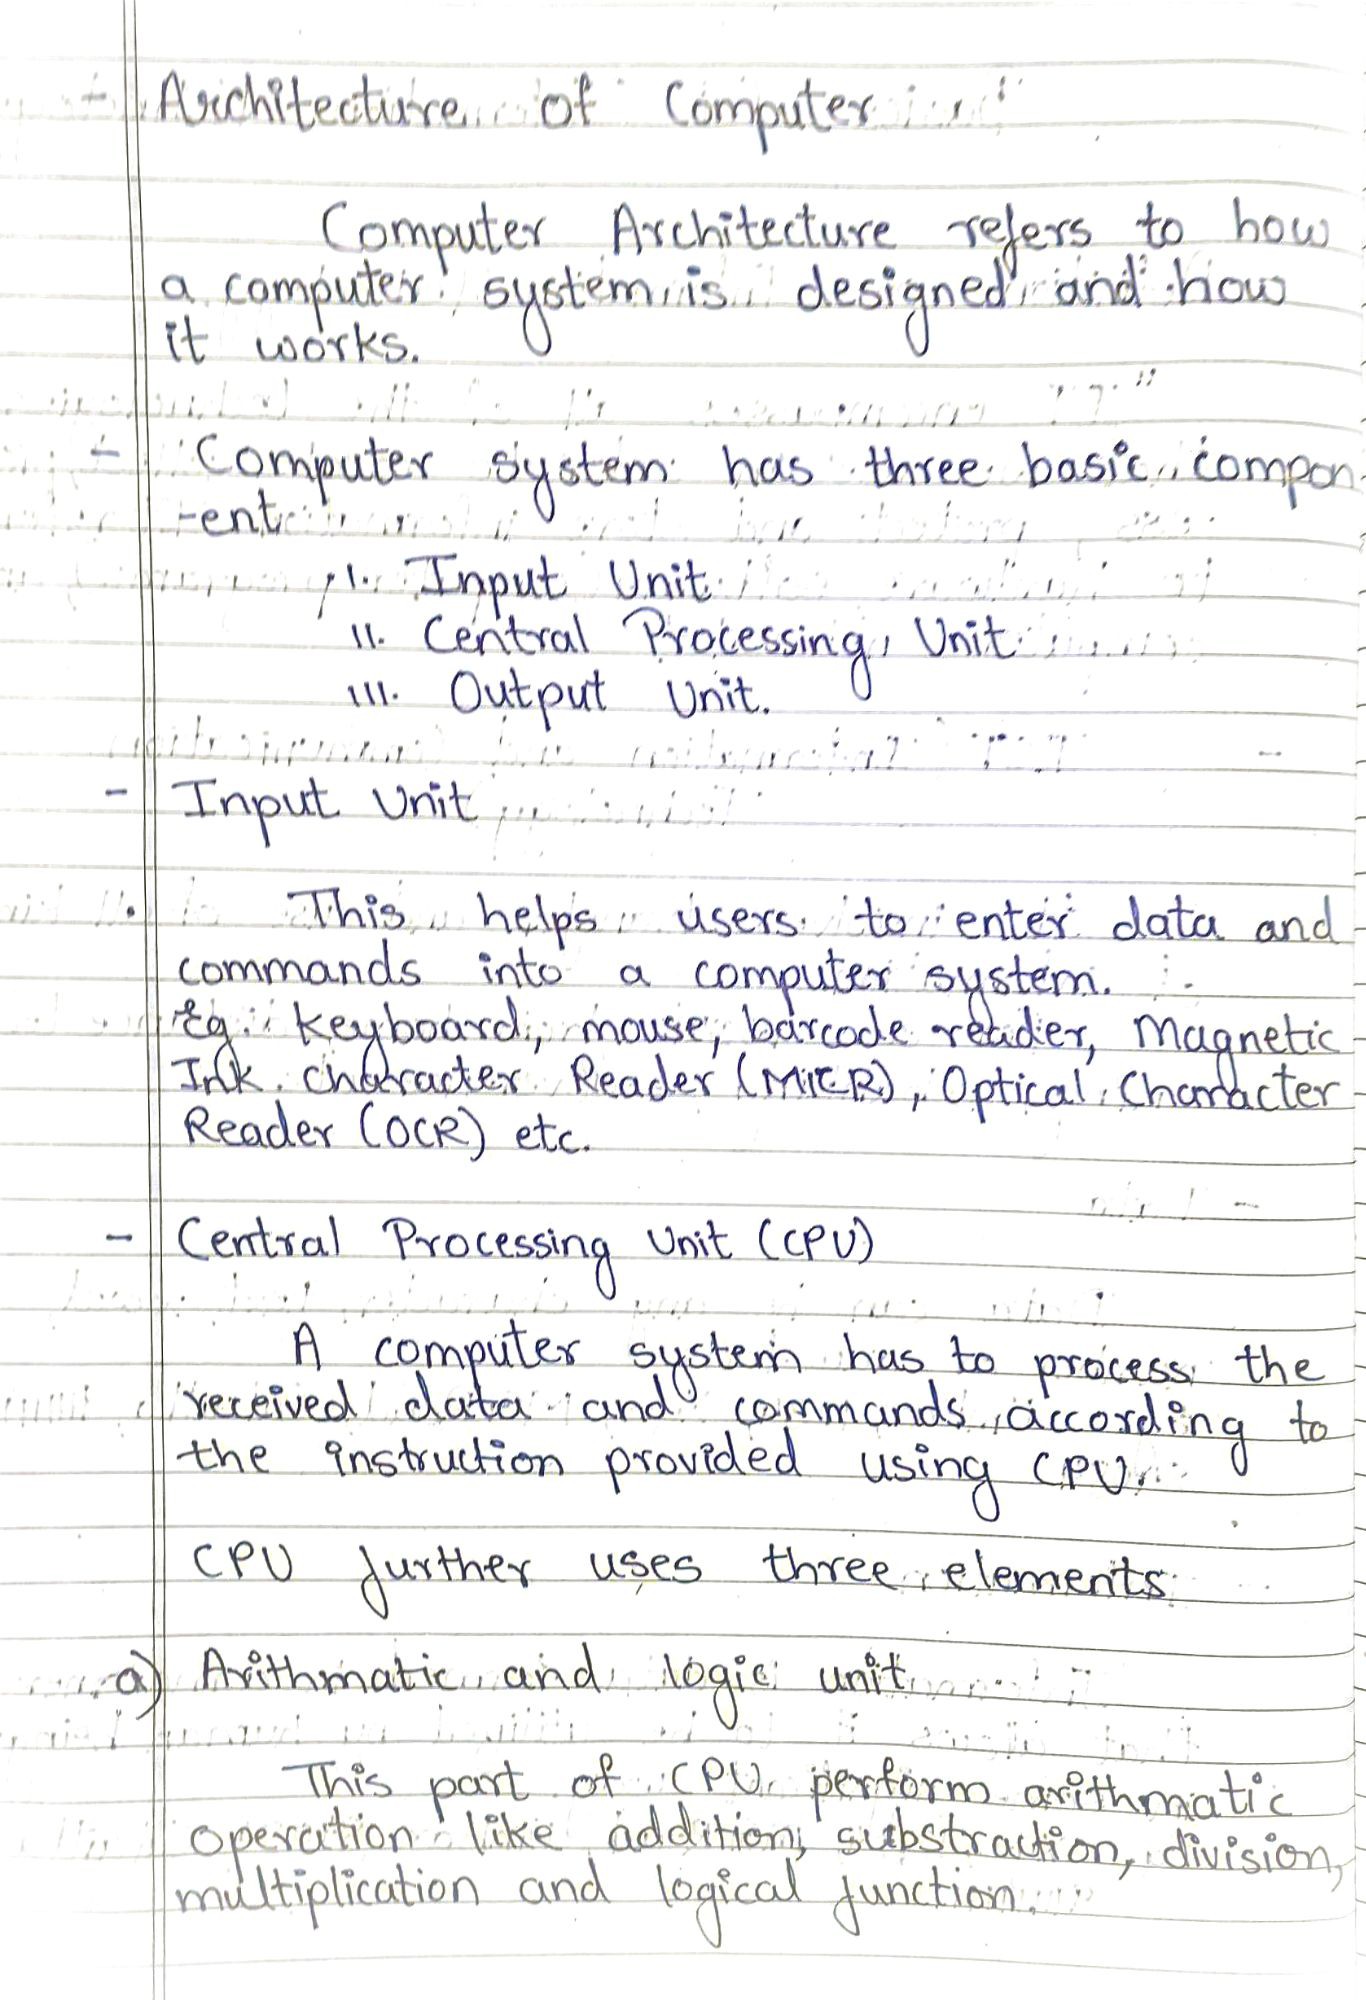 - Architecture of Computer
Computer Architecture refers to how
a computer system is designed and how
it works.
- Computer system has three basic compon
-ent
I. Input Unit
II. Central Processing Unit
III. Output Unit.
- Input Unit
• This helps users to enter data and
commands into a computer system.
Eg. Keyboard, mouse, barcode reader, Magnetic
Ink character Reader (MICR), Optical Character
Reader (OCR) etc.
- Central Processing Unit (CPU)
A computer system has to process the
received data and commands according to
the instruction provided using CPU.
CPU further uses three elements
a) Arithmatic and logic unit
This part of CPU perform arithmatic
operation like addition, substraction, division,
multiplication and logical function.